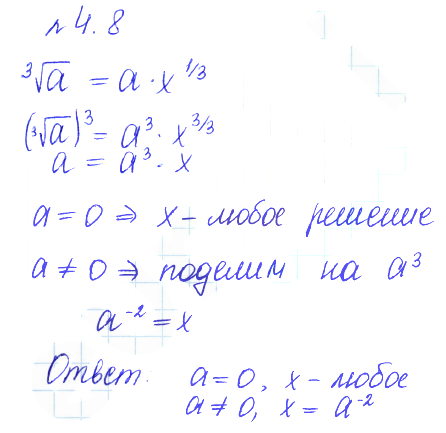 № 4.8
³√a = a · x^{1/3}
(³√a)³ = a³ · x^{3/3}
a = a³ · x
a = 0 ⇒ x – любое решение
a ≠ 0 ⇒ поделим на a³
a⁻² = x
Ответ. a = 0, x – любое
a ≠ 0, x = a⁻²